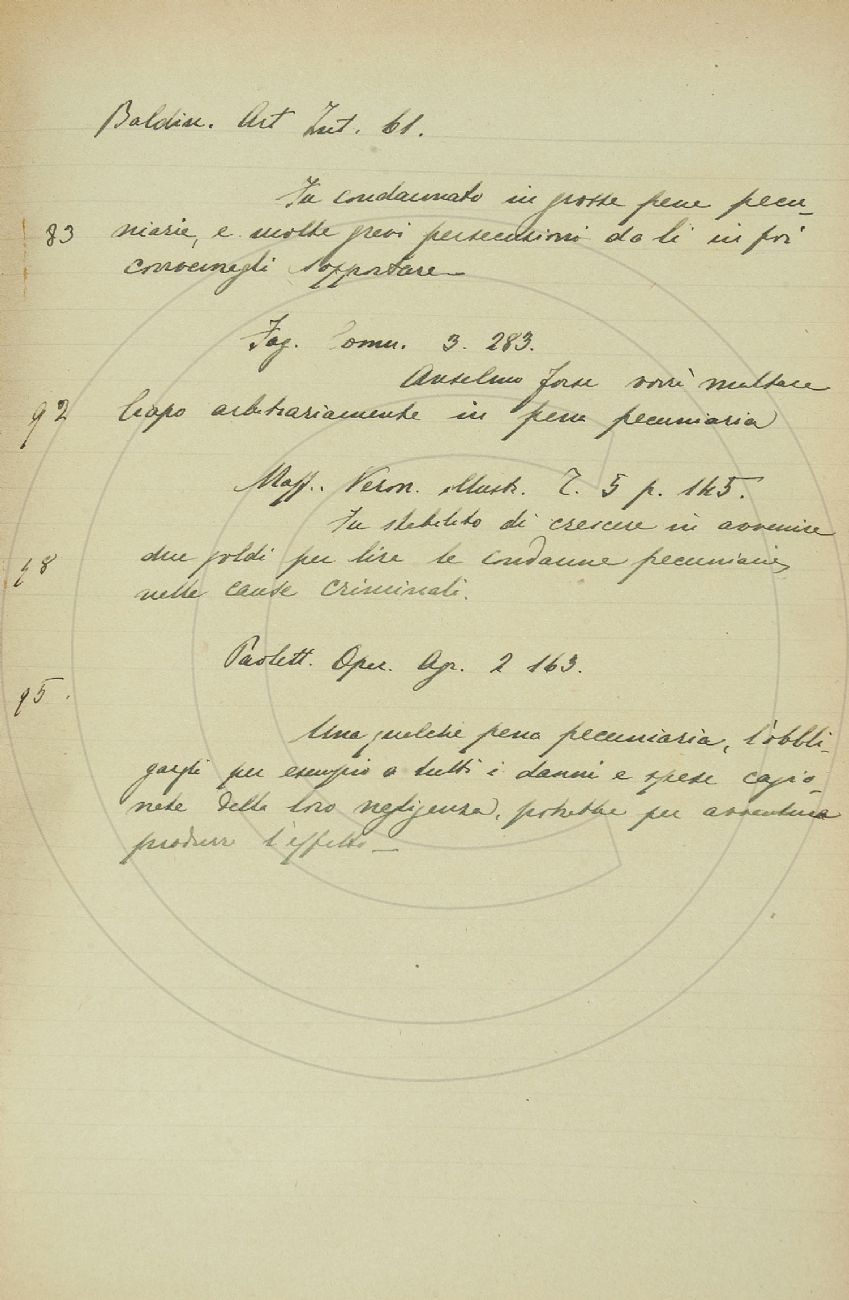 Baldin. Art Int. 61.
Fu condannato in grosse pene pecu-
83 niarie, e molte grevi persecuzioni da lì in poi
convennegli sopportare —
Fag. Comm. 3. 283.
Anselmo forse vorrà multare
92 Ciapo arbitrariamente in pena pecuniaria
Maff. Veron. illustr. T. 5 p. 145.
Fu stabilito di crescere in avvenire
due soldi per lire le condanne pecuniarie
98 nelle cause criminali.
Paolett. Oper. Agr. 2 163.
95.
Una qualche pena pecuniaria, l'obbli-
gargli per esempio a tutti i danni e spese cagio-
nate dalla loro negligenza, potrebbe per avventura
produrre l'effetto —